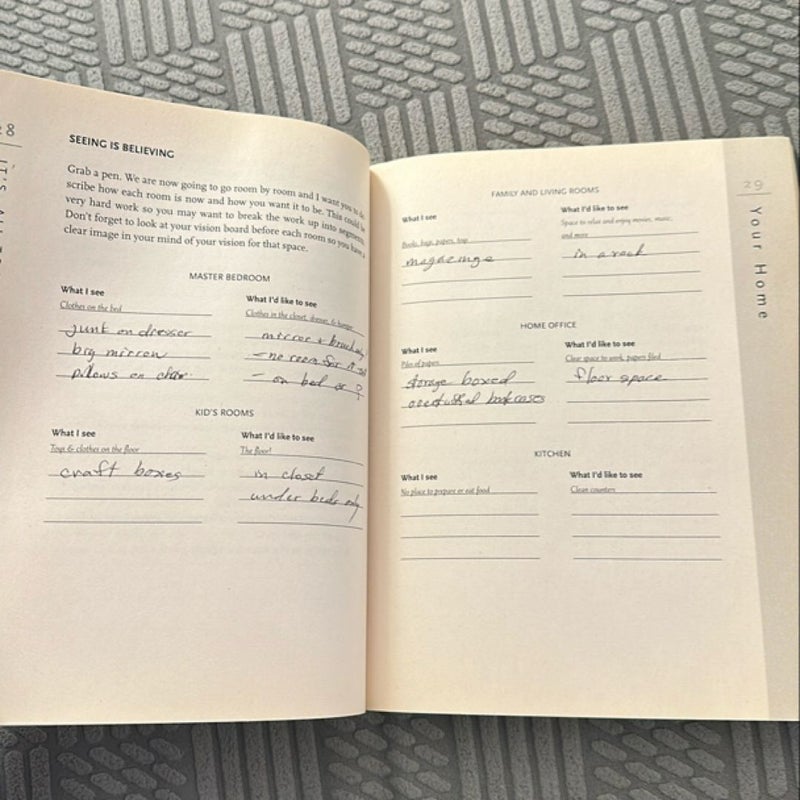 28
SEEING IS BELIEVING
Grab a pen. We are now going to go room by room and I want you to de-
scribe how each room is now and how you want it to be. This could be
very hard work so you may want to break the work up into segments.
Don't forget to look at your vision board before each room so you have a
clear image in your mind of your vision for that space.
MASTER BEDROOM
What I see
Clothes on the bed
junk on dresser
big mirror
pillows on chair
What I'd like to see
Clothes in the closet, dresser, & hamper
mirror + brush only
- no room for it
- on bed or ?
KID'S ROOMS
What I see
Toys & clothes on the floor
craft boxes
What I'd like to see
The floor!
in closet
under beds only
29
Your Home
FAMILY AND LIVING ROOMS
What I see
Books, bags, papers, toys
magazings
What I'd like to see
Space to relax and enjoy movies, music,
and more
in a rack
HOME OFFICE
What I see
Piles of papers
storage boxed
bookcases
What I'd like to see
Clear space to work, papers filed
floor space
KITCHEN
What I see
No place to prepare or eat food
What I'd like to see
Clean counters